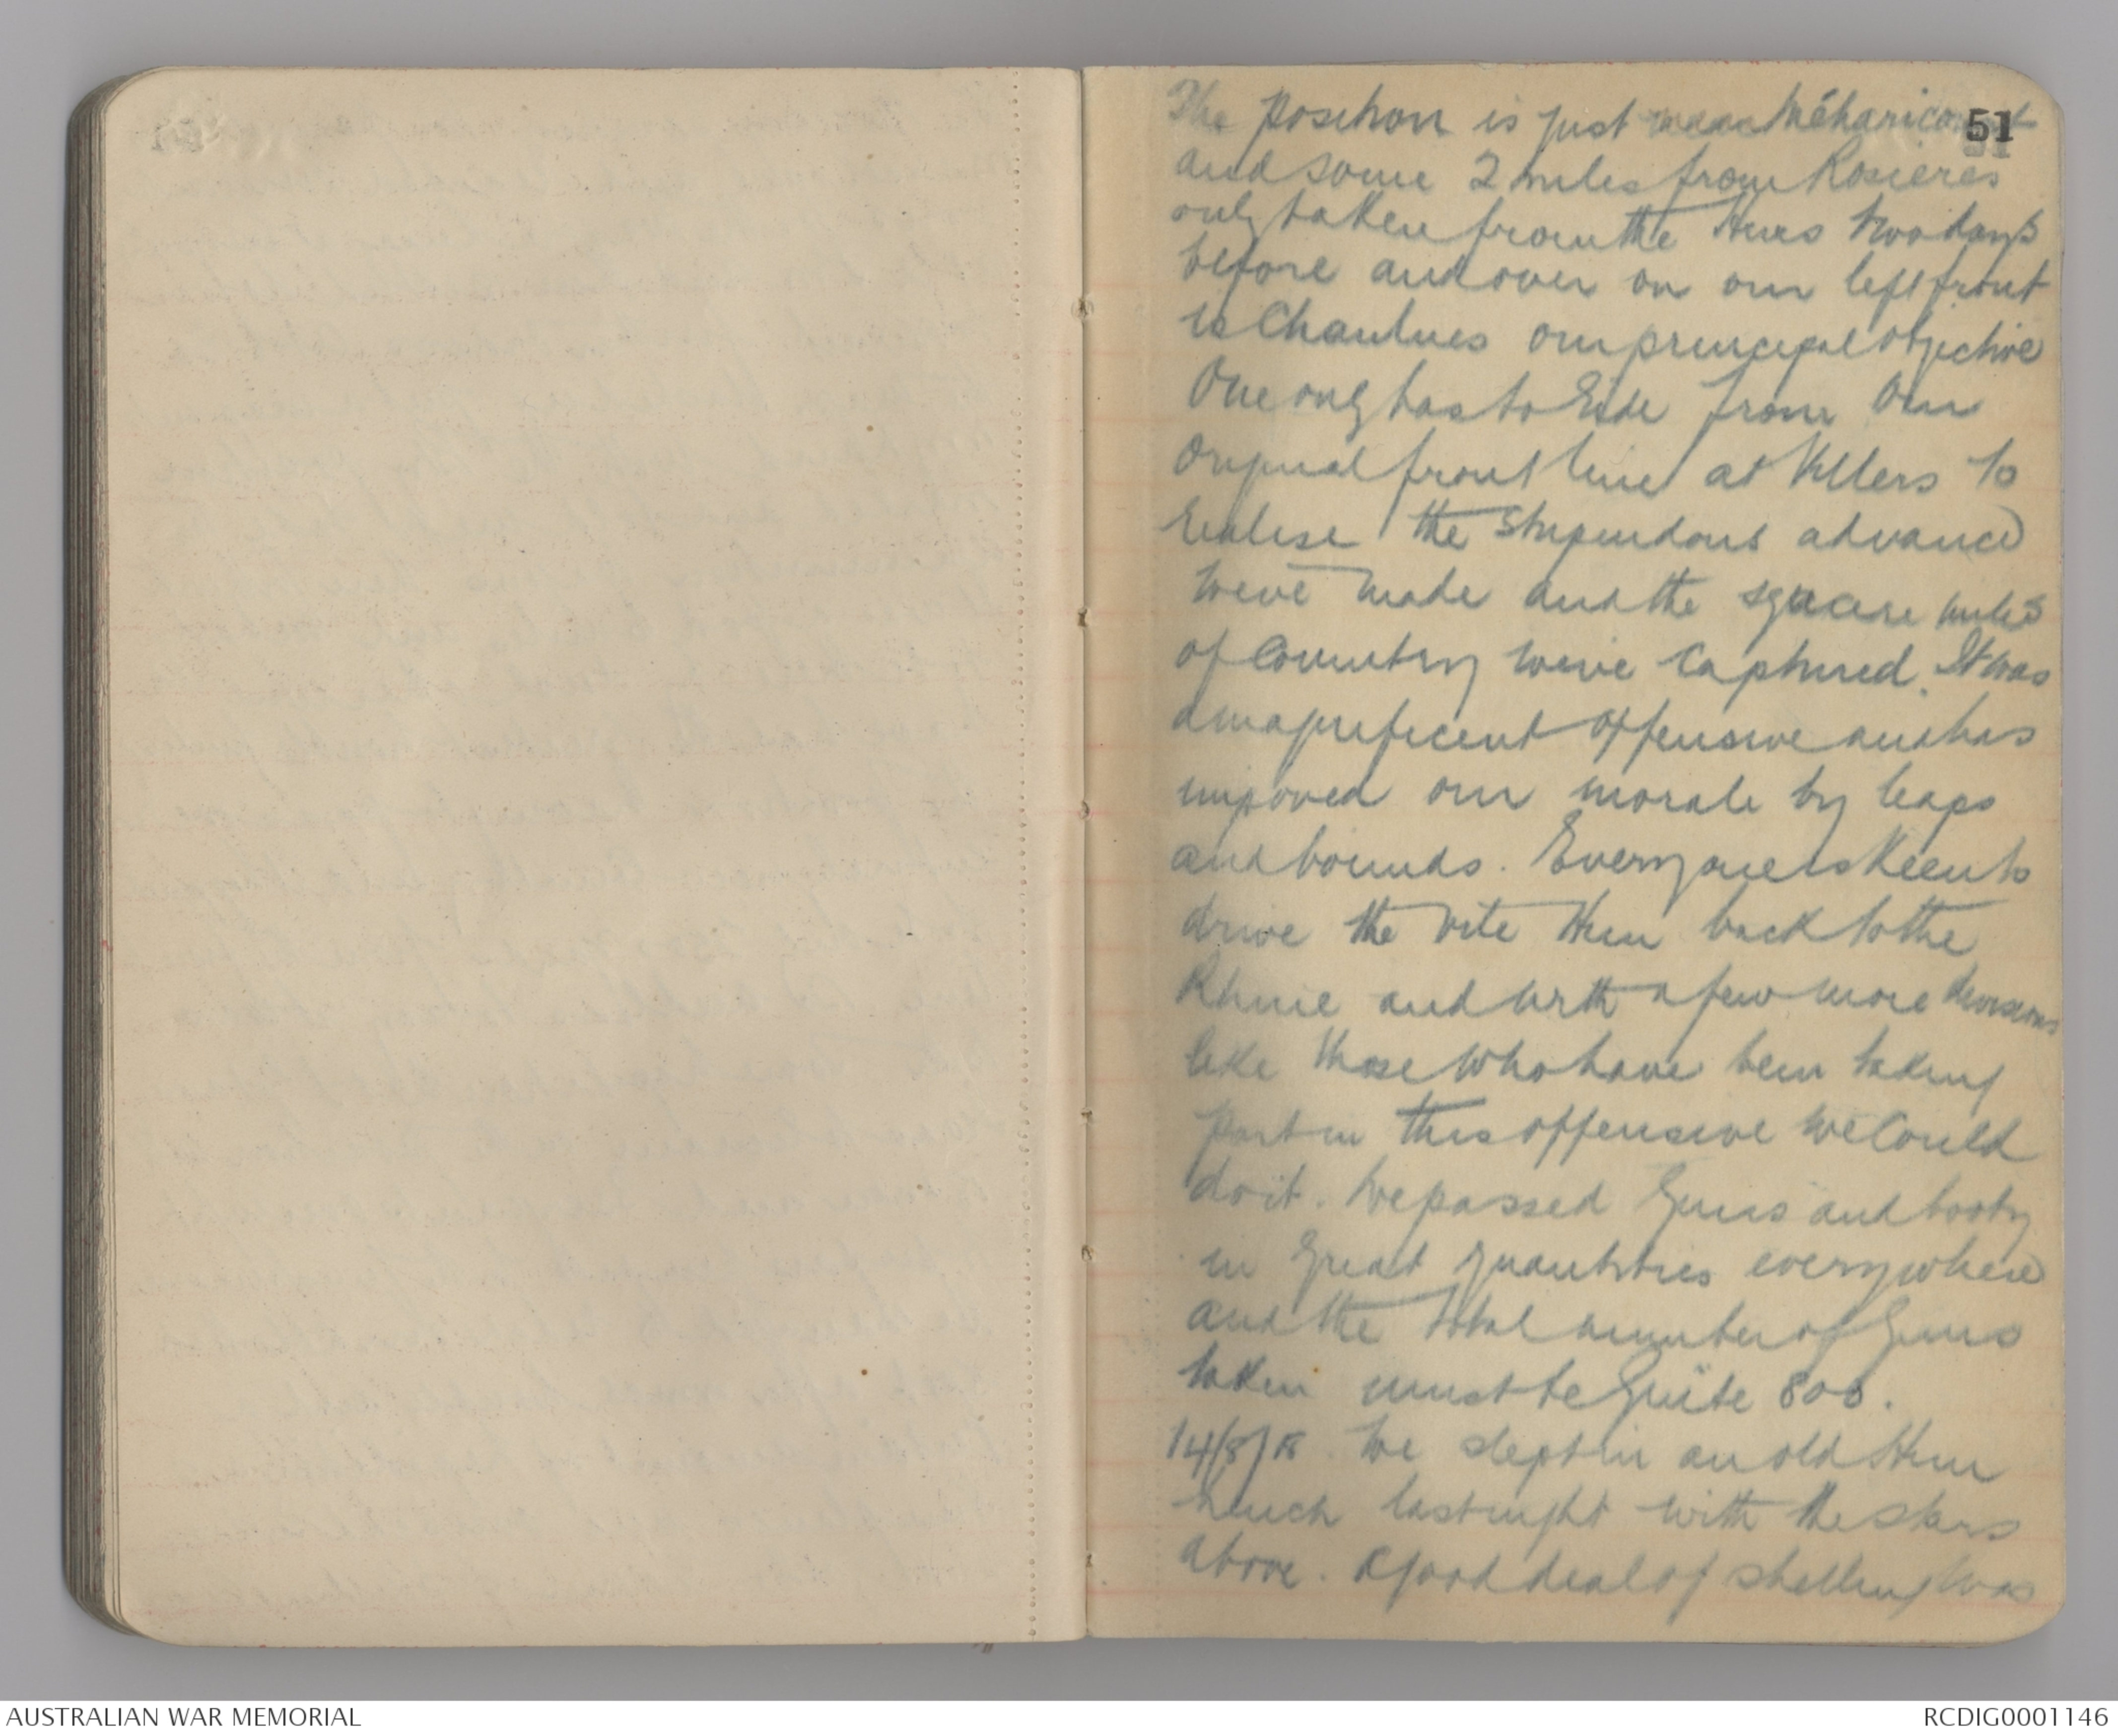 51
The position is just near Méharicourt
and some 2 miles from Rosieres
only taken from the Huns two days
before and over on our left front
is Chaulnes our principal objective
One only has to ride from our
original front line at Villers to
realise the stupendous advance
weve made and the square miles
of country weve captured. It was
a magnificent offensive and has
improved our morale by leaps
and bounds. Everyone is keen to
drive the vile Hun back to the
Rhine and with a few more divisions
like those who have been taking
part in this offensive we could
do it. We passed guns and booty
in great quantities everywhere
and the total number of guns
taken must be quite 800.
14/8/18. We slept in an old Hun
trench last night with the stars
above. A good deal of shelling was
AUSTRALIAN WAR MEMORIAL
RCDIG0001146